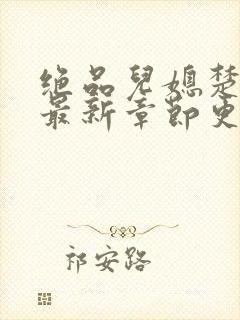 绝品兒媳楚
最新章節更
祁安路